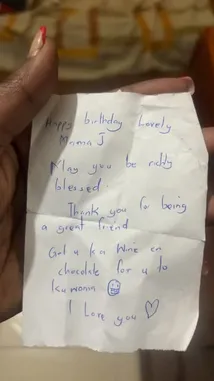 Happy birthday Lovely
Mama J
May you be richly
blessed.
Thank you for being
a great friend
Got u ka wine en
chocolate for u to
I Love you